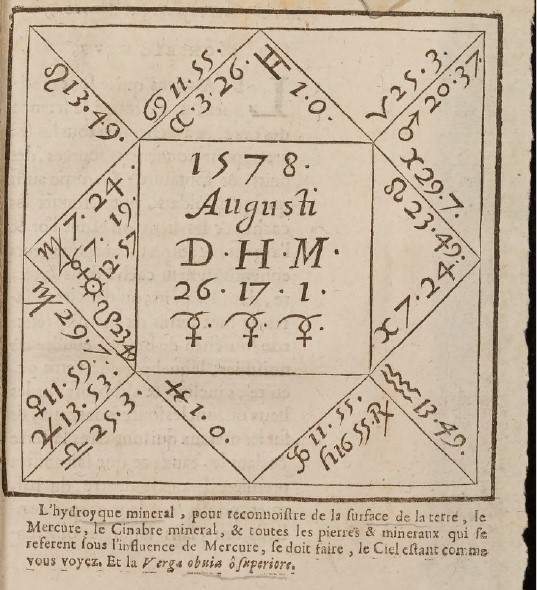 ♌ 13. 49.
♋ 11. 55.
☾ 3. 26.
♊ 1. 0.
♈ 25. 3.
♂ 20. 37.
♓ 29. 7.
♌ 23. 49.
♓ 7. 24.
♒ 13. 49.
♑ 11. 55.
♄ 16 55. ℞
♐ 1. 0.
♀ 11. 59.
♃ 13. 53.
♎ 25. 3.
29. 7
♍ 7. 24
7. 19.
12. 57
1578.
Augusti
D · H · M ·
26 · 17 · 1 ·
L'hydroyque mineral, pour reconnoistre de la surface de la terre, le
Mercure, le Cinabre mineral, & toutes les pierres & mineraux qui se
referent sous l'influence de Mercure, se doit faire, le Ciel estant comme
vous voyez. Et la Verga obuia ò superiore.